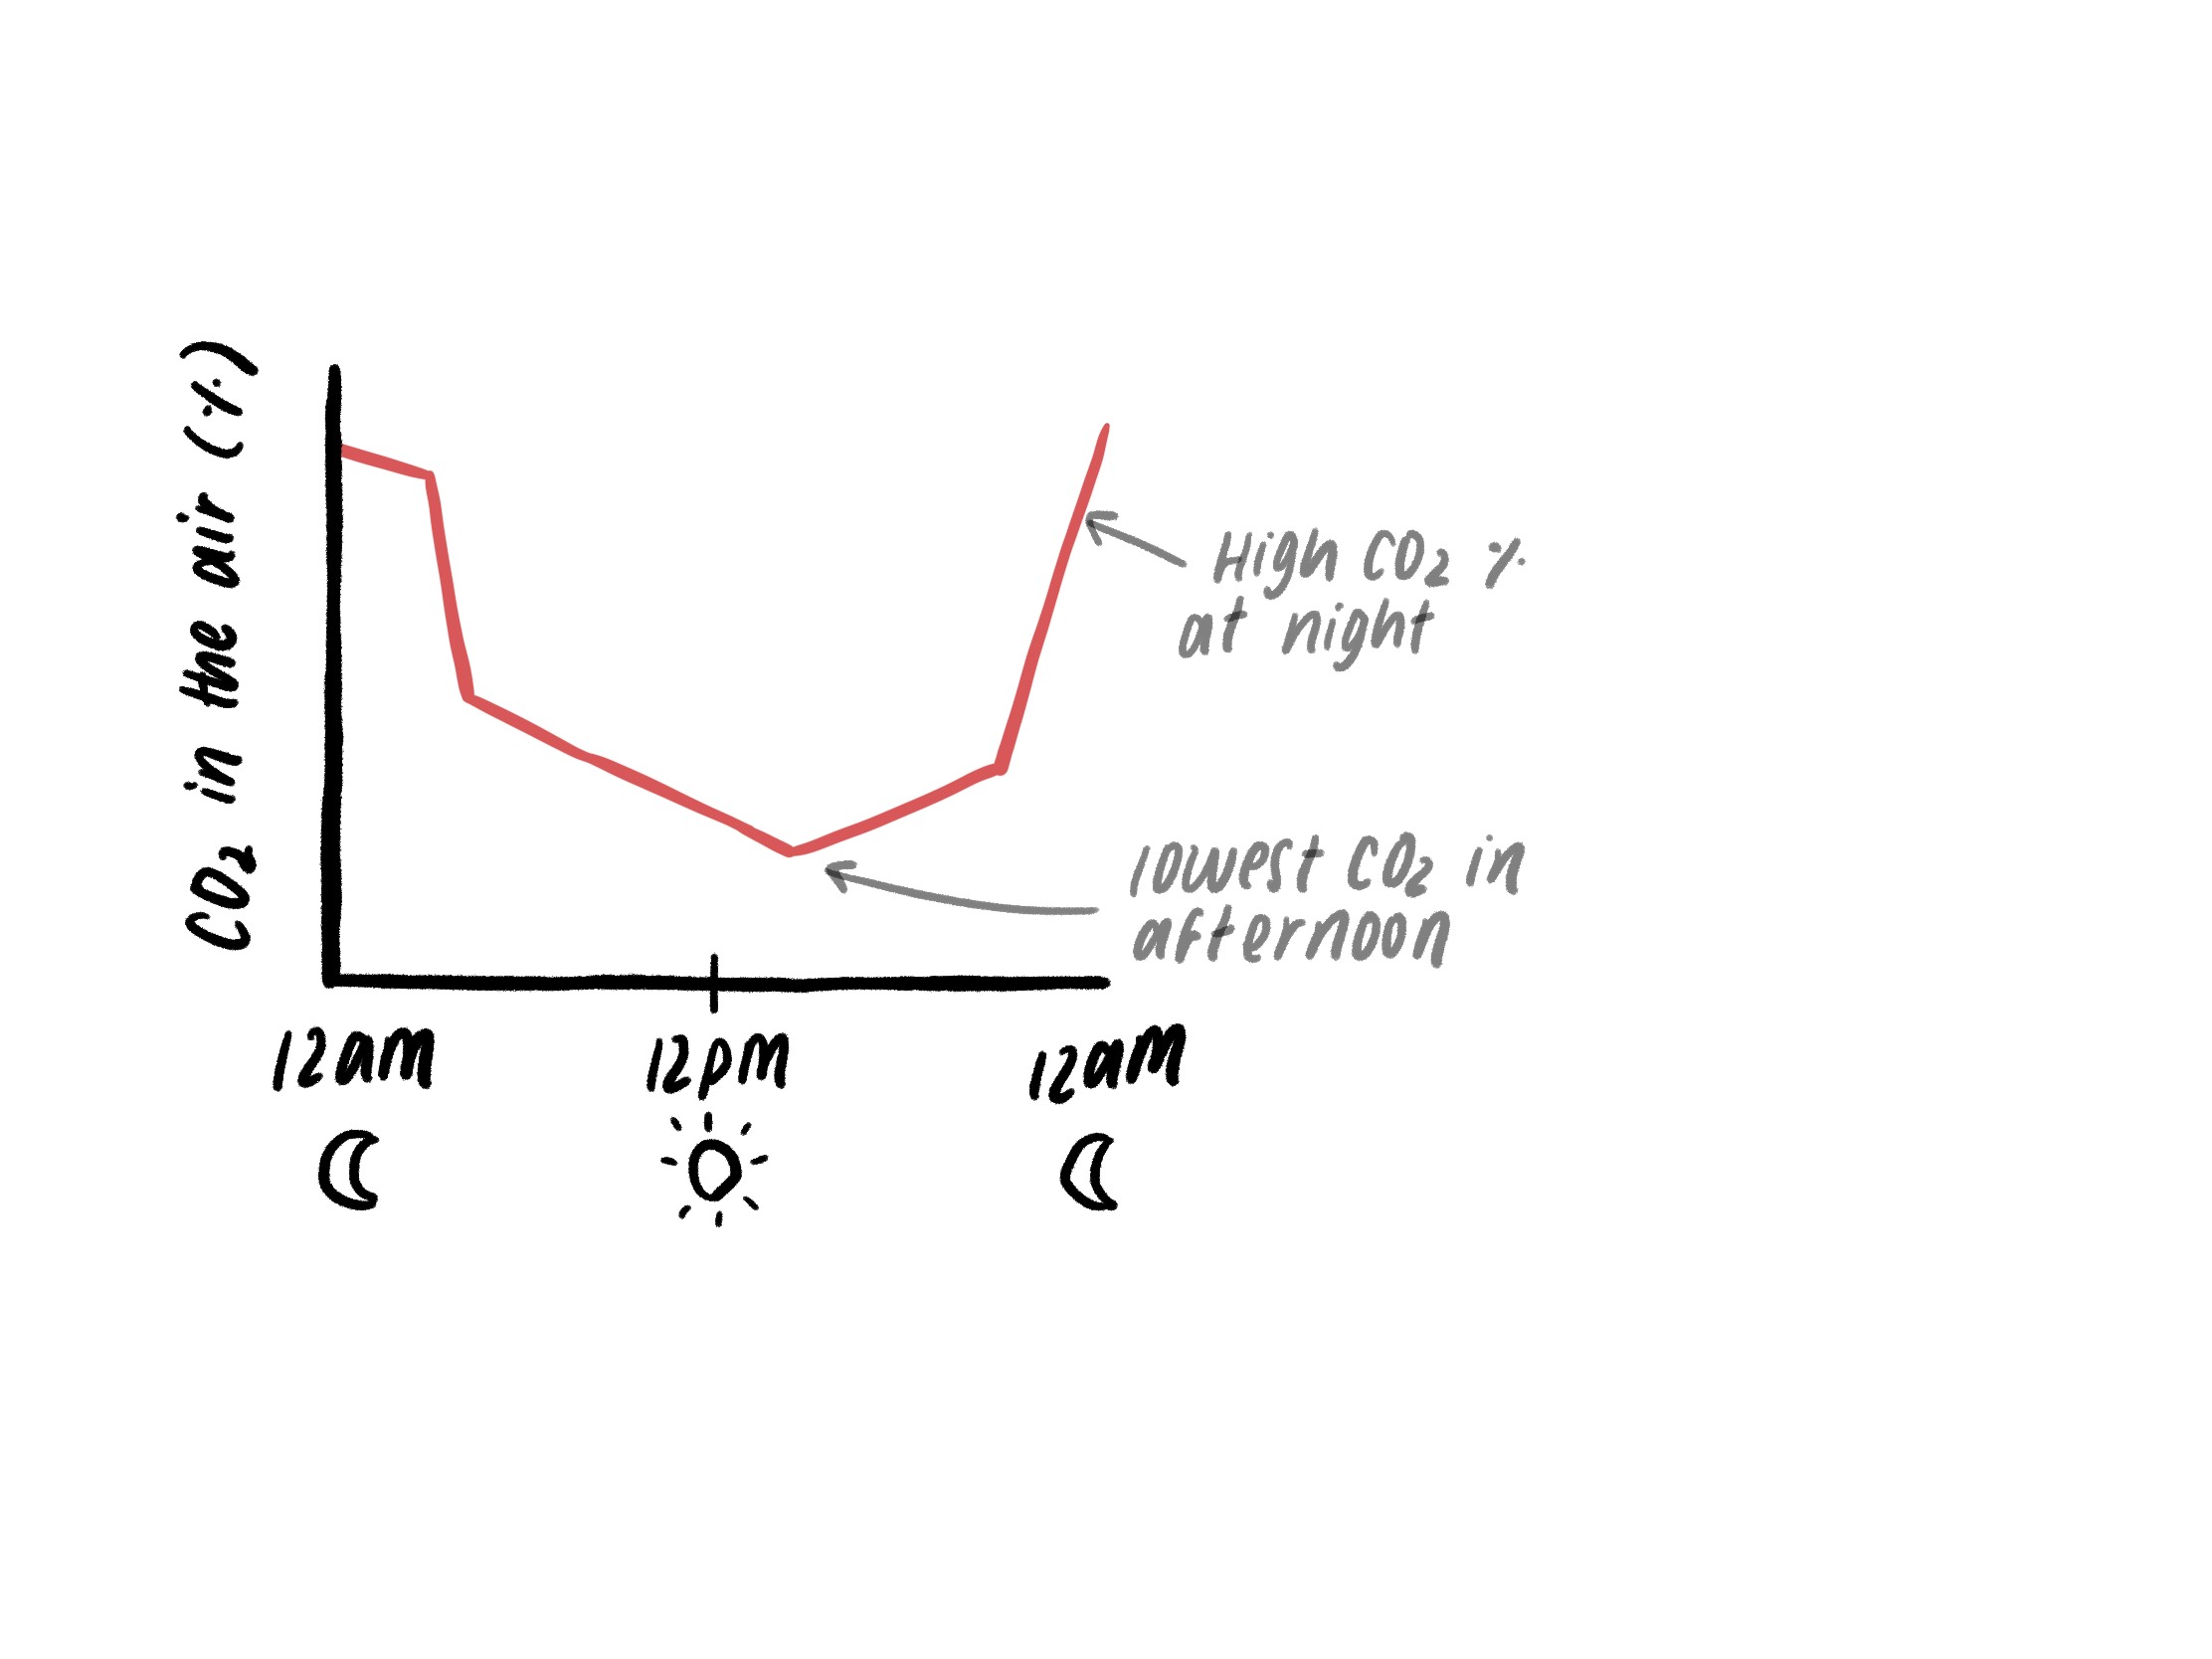 CO₂ in the air (%)
High CO₂ %
at night
lowest CO₂ in
afternoon
12am
12pm
12am